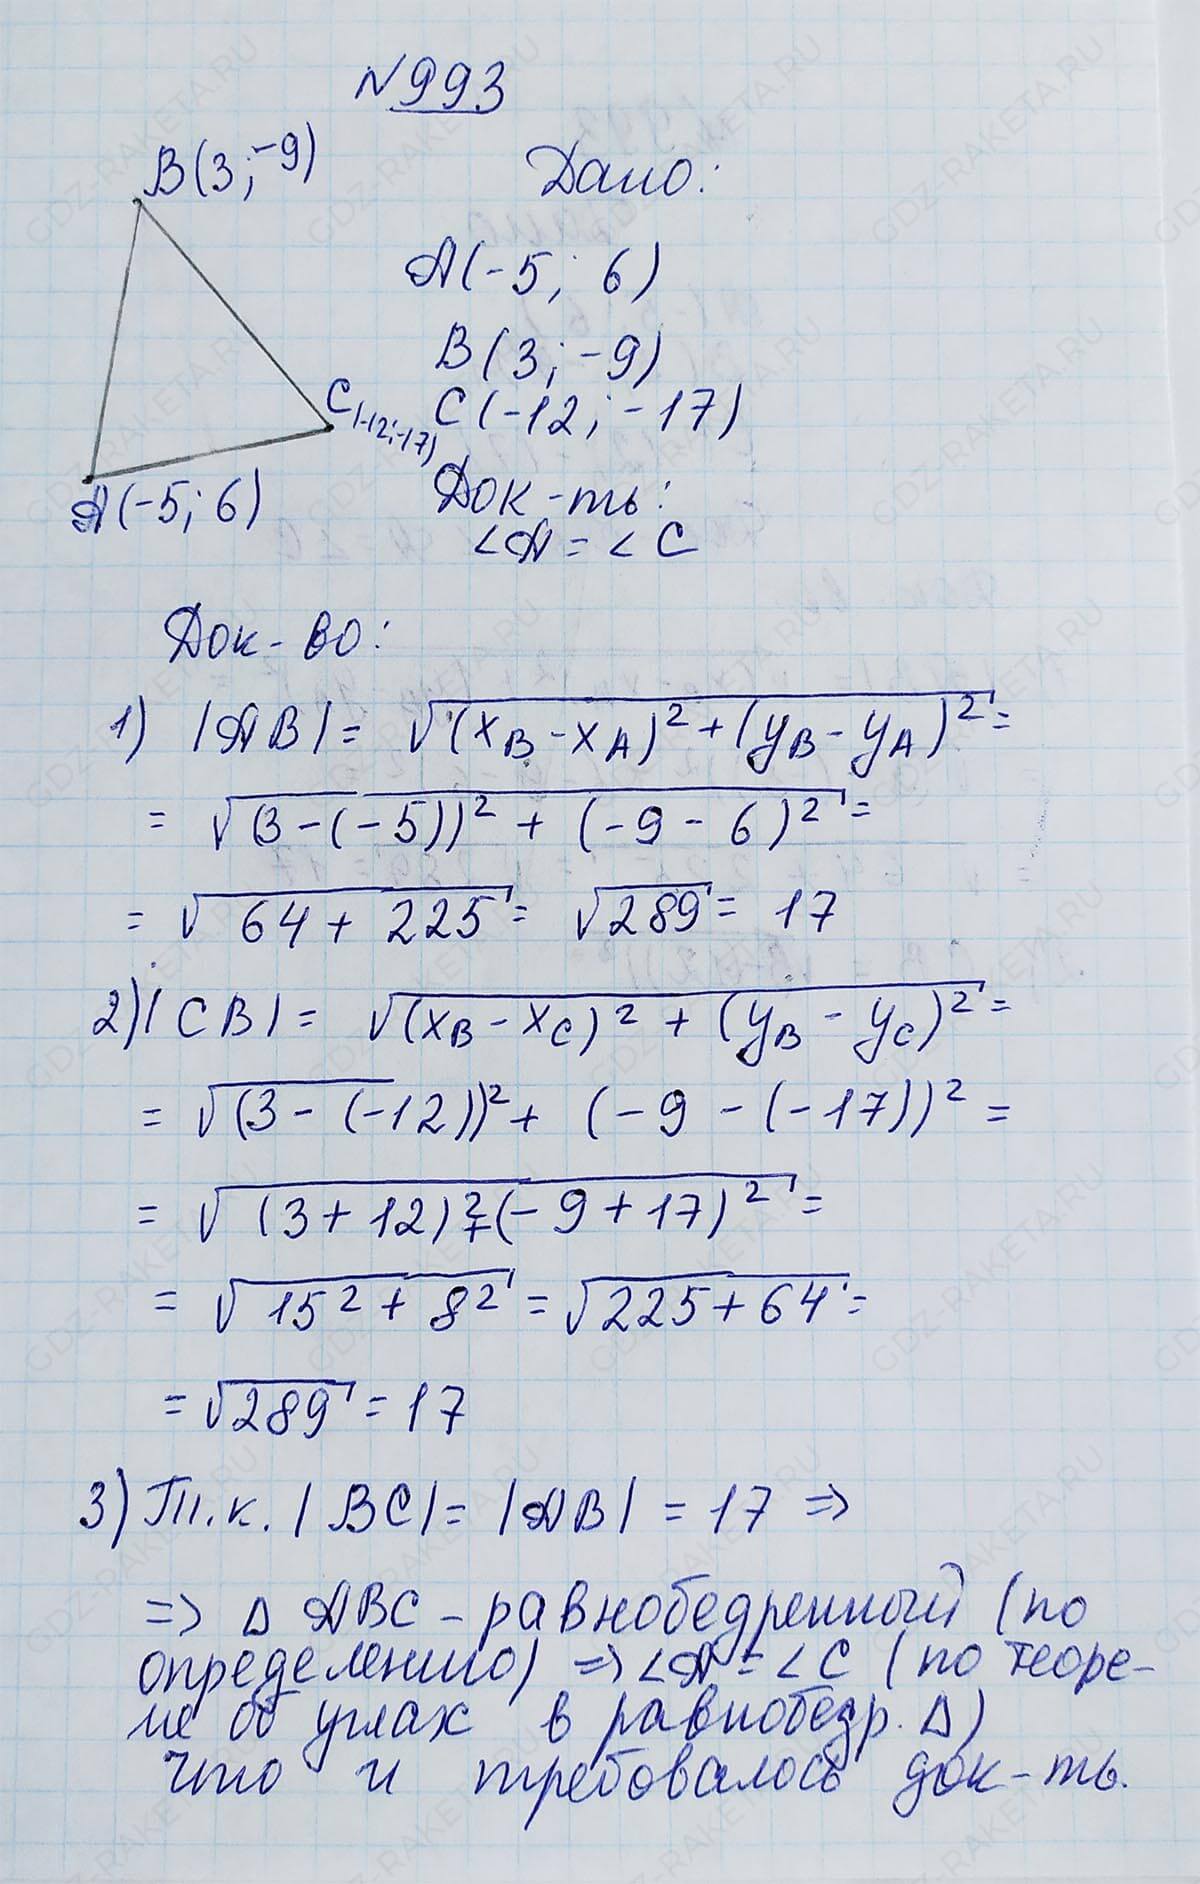 N993
B(3;-9)
Дано:
A(-5; 6)
B(3; -9)
C(-12;-17)
C(-12; -17)
A(-5; 6)
Док-ть:
∠A = ∠C
Док-во:
1) |AB| = √((x_B - x_A)² + (y_B - y_A)²) =
= √((3-(-5))² + (-9-6)²) =
= √(64 + 225) = √289 = 17
2) |CB| = √((x_B - x_C)² + (y_B - y_C)²) =
= √((3-(-12))² + (-9-(-17))²) =
= √((3+12)² + (-9+17)²) =
= √(15² + 8²) = √(225+64) =
= √289 = 17
3) Т.к. |BC| = |AB| = 17 =>
=> Δ ABC - равнобедренный (по
определению) => ∠A = ∠C (по теоре-
ме об углах в равнобедр. Δ)
Что и требовалось док-ть.
GDZ-RAKETA.RU